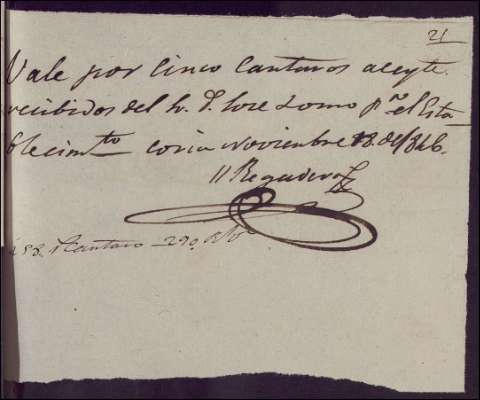 21
Vale por Cinco Cantaros aceyte
recibidos del Sr. Dn. Jose Lomo pa. el Esta
blecimto Coria Noviembre 18. de 1846.
Regadera
á 58. Cantaro 290 Rs. Vn.